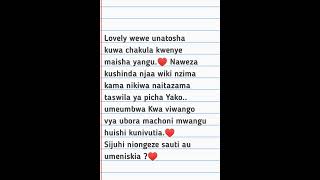 Lovely wewe unatosha
kuwa chakula kwenye
maisha yangu.❤️ Naweza
kushinda njaa wiki nzima
kama nikiwa naitazama
taswila ya picha Yako..
umeumbwa Kwa viwango
vya ubora machoni mwangu
huishi kunivutia.❤️
Sijuhi niongeze sauti au
umeniskia ?❤️